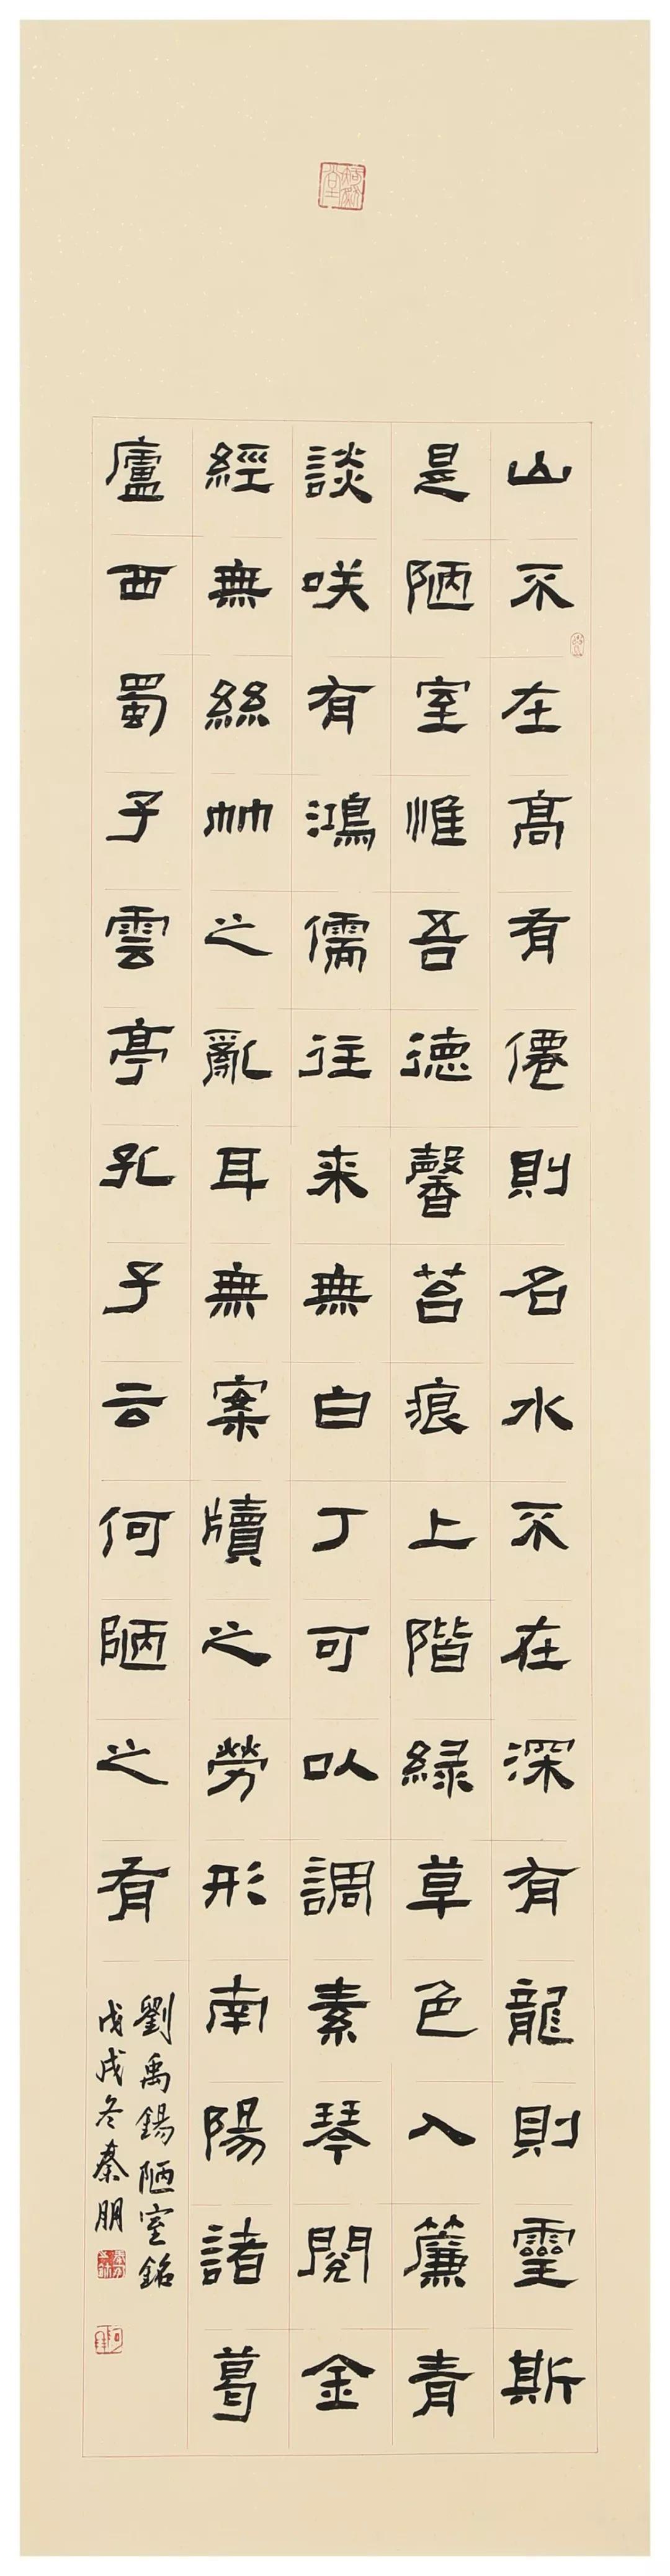 山不在高有僊則名水不在深有龍則靈斯
是陋室惟吾徳馨苔痕上階緑草色入簾青
談咲有鴻儒往来無白丁可以調素琴閲金
經無絲竹之亂耳無案牘之勞形南陽諸葛
廬西蜀子雲亭孔子云何陋之有
劉禹錫陋室銘
戊戌冬秦朋